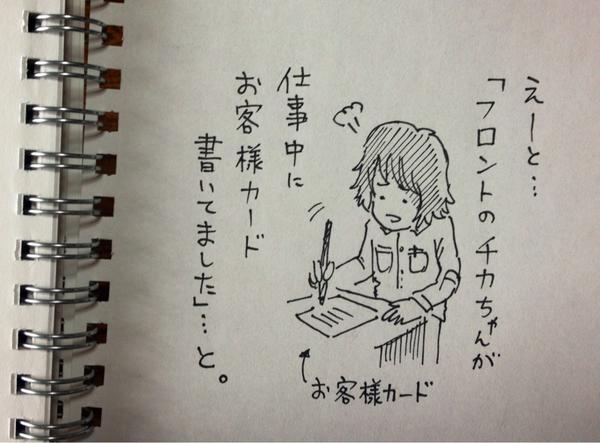 えーと…
「フロントのチカちゃんが
仕事中に
お客様カード
書いてました」…と。
お客様カード